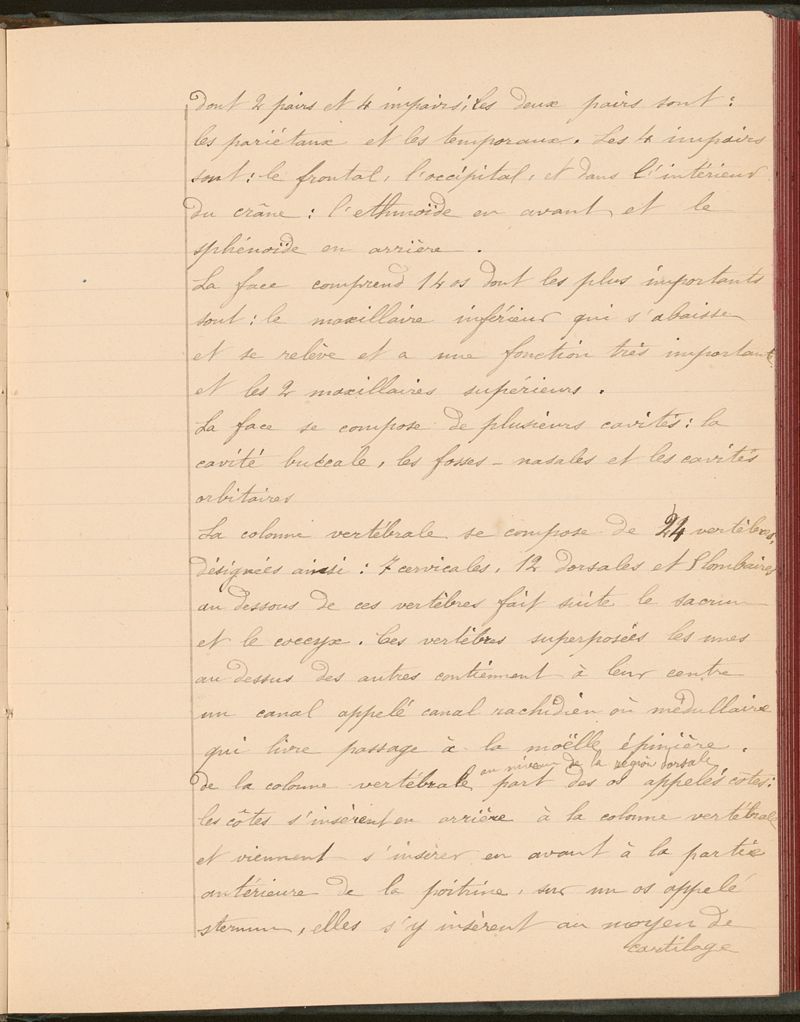 dont 2 pairs et 4 impairs; les deux pairs sont :
les pariétaux et les temporaux. Les 4 impairs
sont : le frontal, l'occipital, et dans l'intérieur
du crâne : l'ethmoïde en avant et le
sphénoïde en arrière.
La face comprend 14 os dont les plus importants
sont : le maxillaire inférieur qui s'abaisse
et se relève et a une fonction très importante
et les 2 maxillaires supérieurs.
La face se compose de plusieurs cavités : la
cavité buccale, les fosses-nasales et les cavités
orbitaires
La colonne vertébrale se compose de 24 vertèbres,
désignées ainsi : 7 cervicales, 12 dorsales et 5 lombaires
au dessous de ces vertèbres fait suite le sacrum
et le coccyx. Ces vertèbres superposées les unes
au dessus des autres contiennent à leur centre
un canal appelé canal rachidien où médullaire
qui livre passage à la moëlle épinière.
au niveau de la région dorsale
de la colonne vertébrale part des os appelés côtes :
les côtes s'insèrent en arrière à la colonne vertébrale
et viennent s'insérer en avant à la partie
antérieure de la poitrine, sur un os appelé
sternum, elles s'y insèrent au moyen de
cartilage